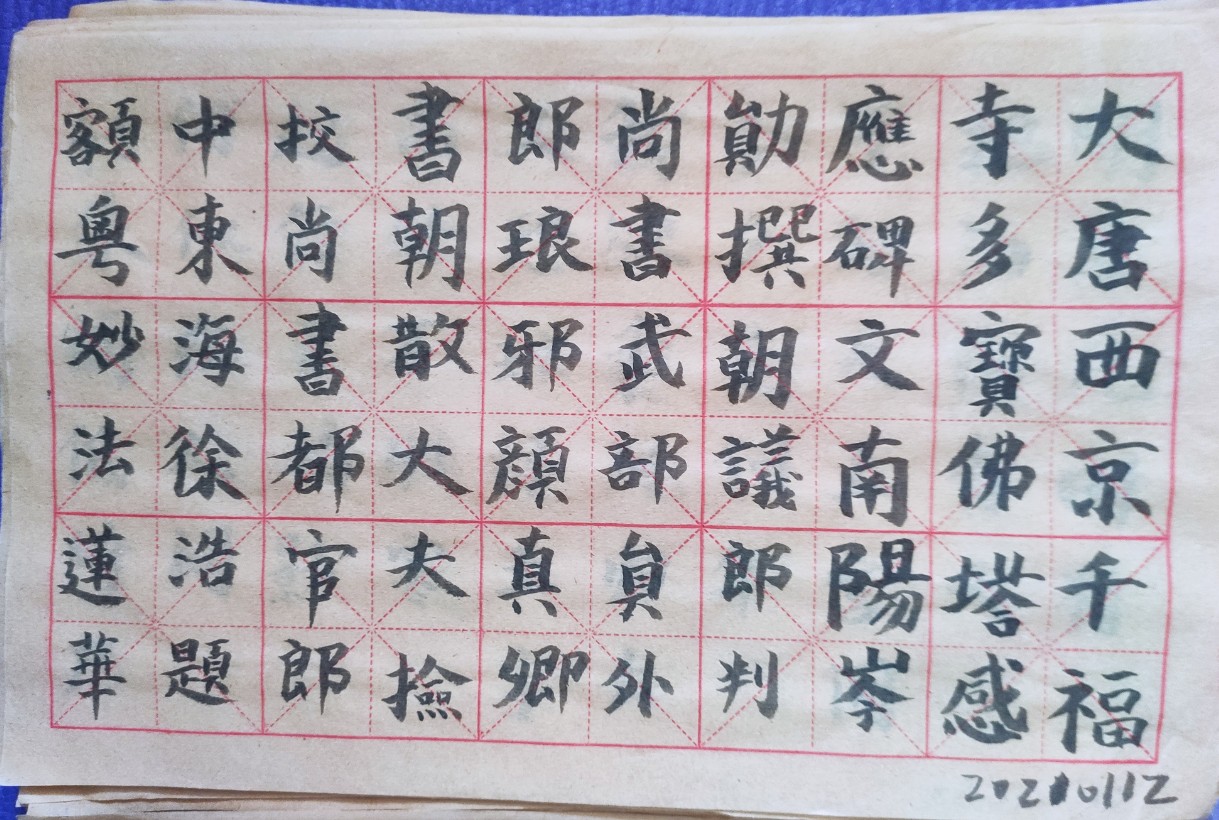 大唐西京千福
寺多寶佛塔感
應碑文南陽岑
勛撰朝議郎判
尚書武部員外
郎琅邪顏真卿
書朝散大夫撿
挍尚書都官郎
中東海徐浩題
額粵妙法蓮華
20210112